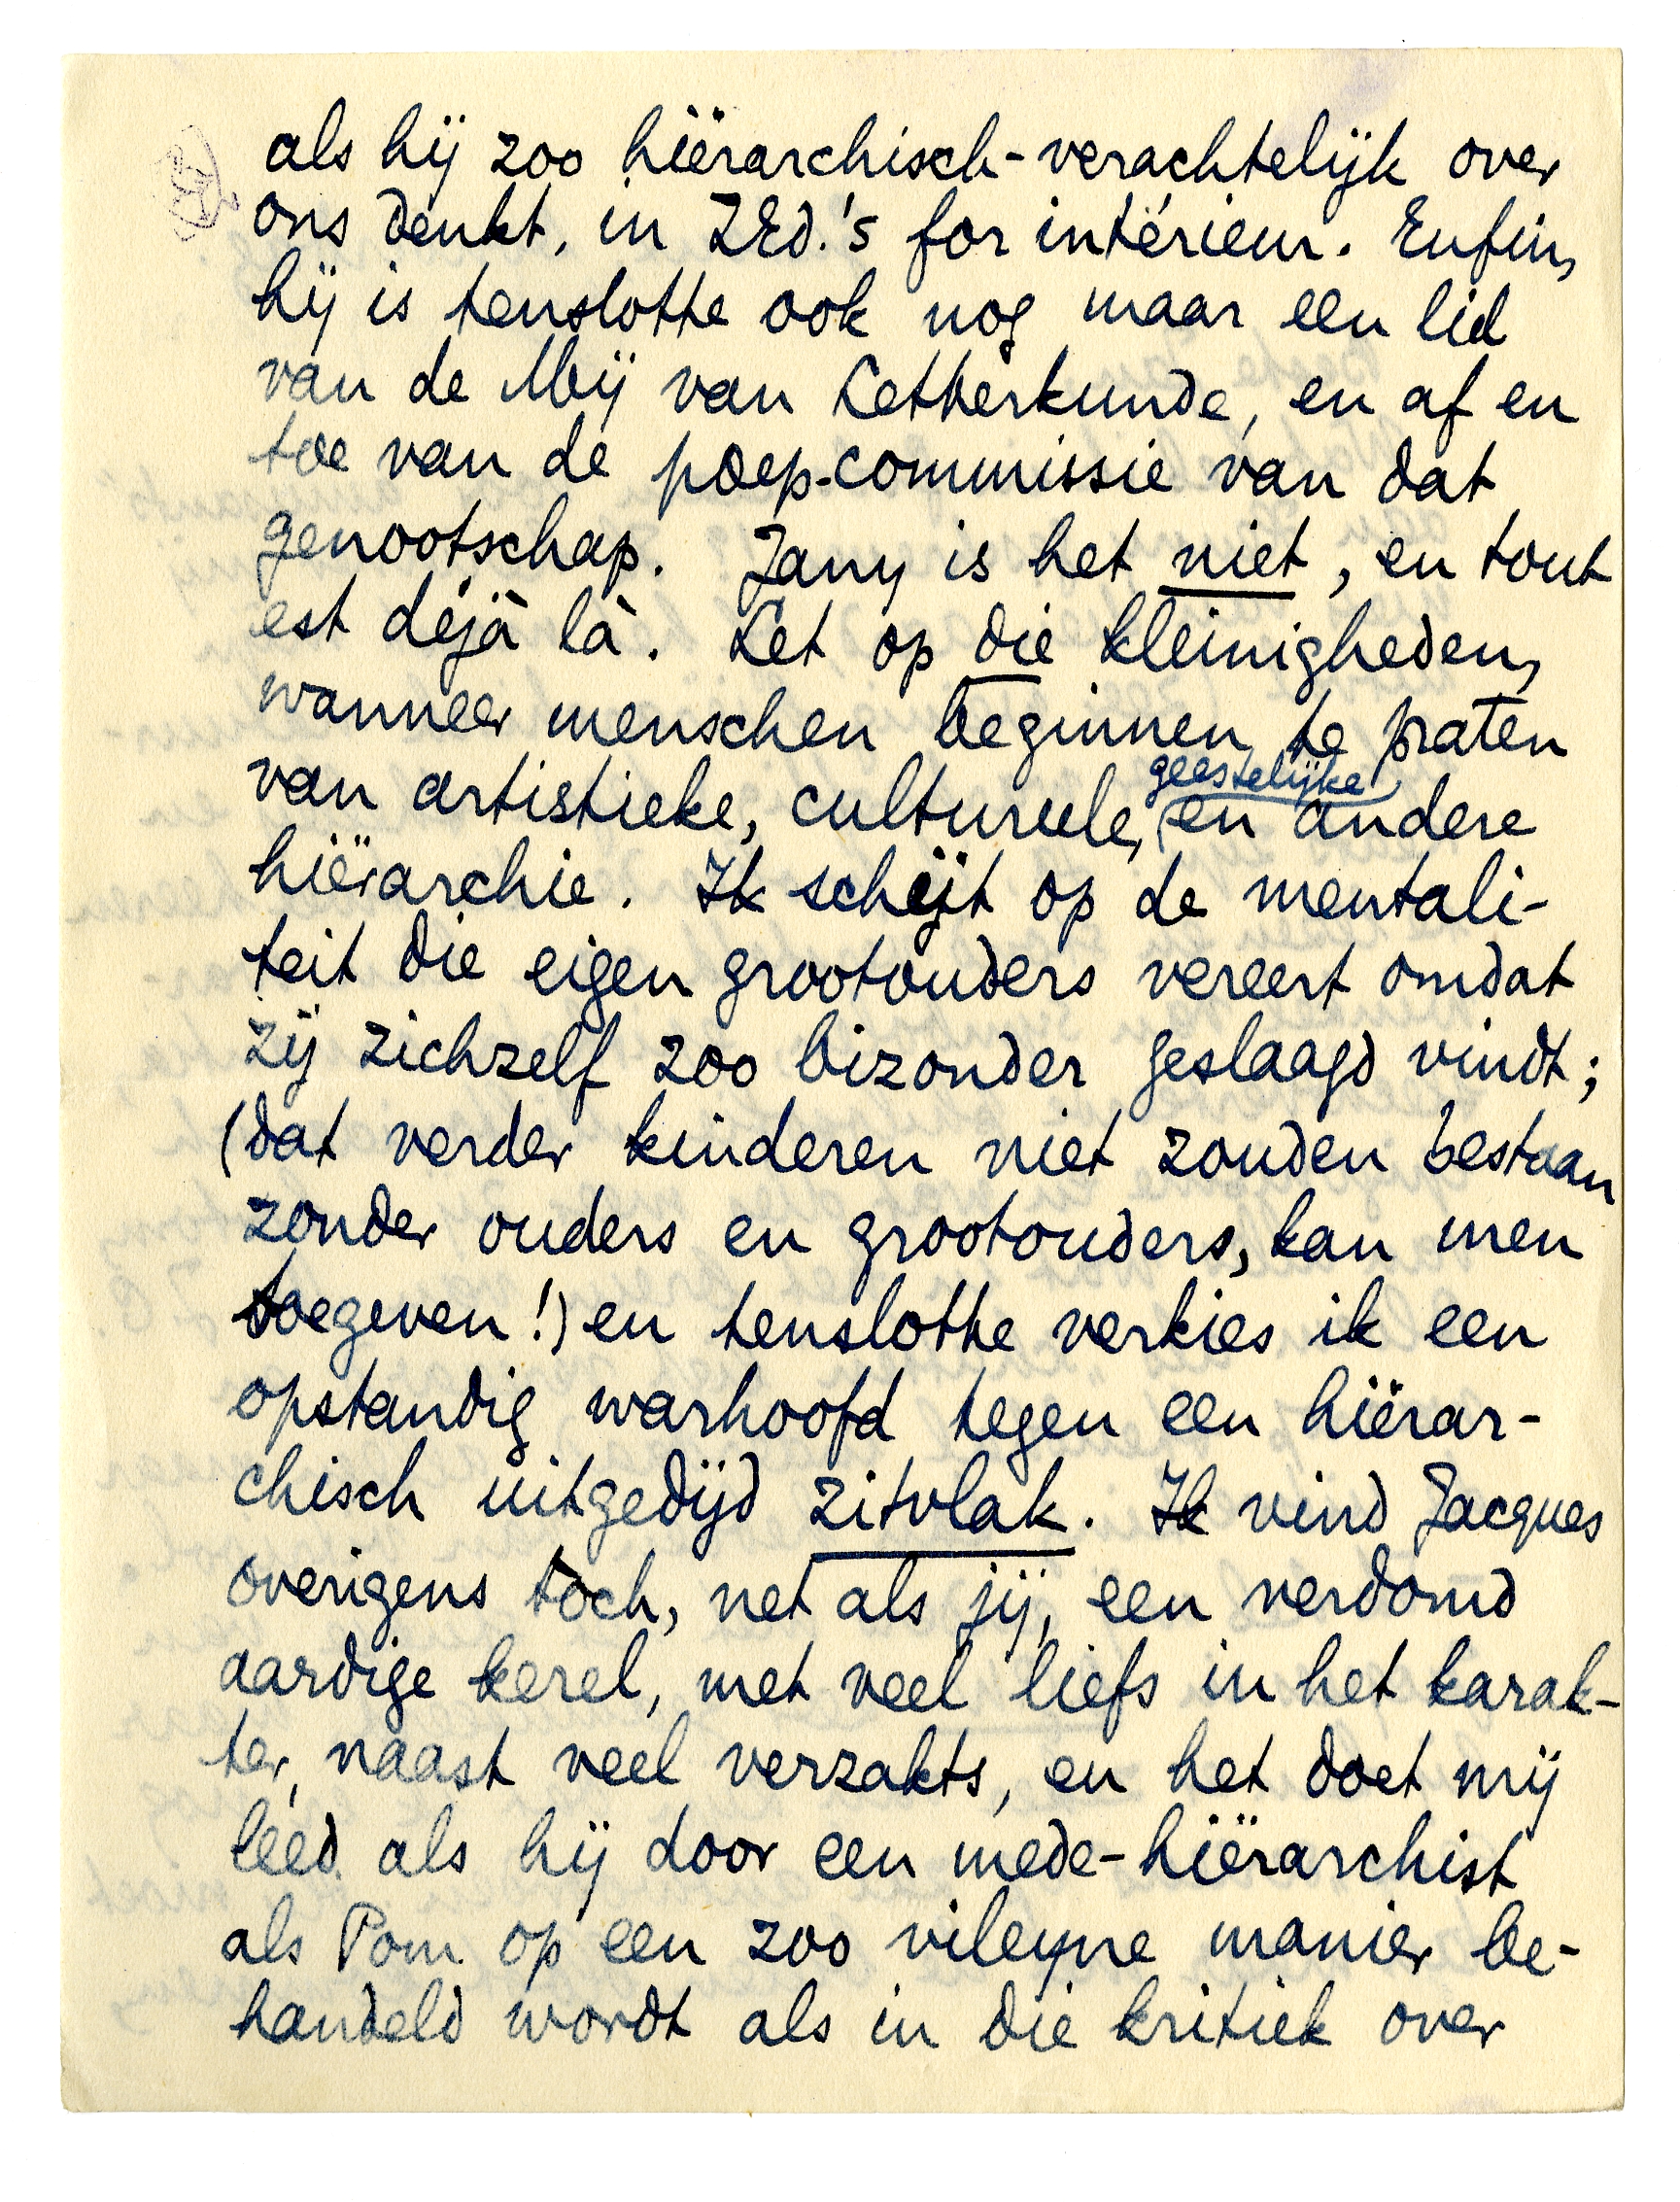 als hij zoo hiërarchisch-verachtelijk over
ons denkt, in ZEd.'s for intérieur. Enfin,
hij is tenslotte ook nog maar een lid
van de Mij van Letterkunde, en af en
toe van de poep-commissie van dat
genootschap. Jany is het niet, en tout
est déjà là. Let op die kleinigheden,
wanneer menschen beginnen te praten
van artistieke, cultureele, geestelijke en andere
hiërarchie. Ik schijt op de mentali-
teit die eigen grootouders vereert omdat
zij zichzelf zoo bizonder geslaagd vindt;
(dat verder kinderen niet zouden bestaan
zonder ouders en grootouders, kan men
toegeven!) en tenslotte verkies ik een
opstandig warhoofd tegen een hiërar-
chisch uitgedijd zitvlak. Ik vind Jacques
overigens tòch, net als jij, een verdomd
aardige kerel, met veel liefs in het karak-
ter, naast veel verzakts, en het doet mij
leed als hij door een mede-hiërarchist
als Pom op een zoo vileyne manier be-
handeld wordt als in die kritiek over